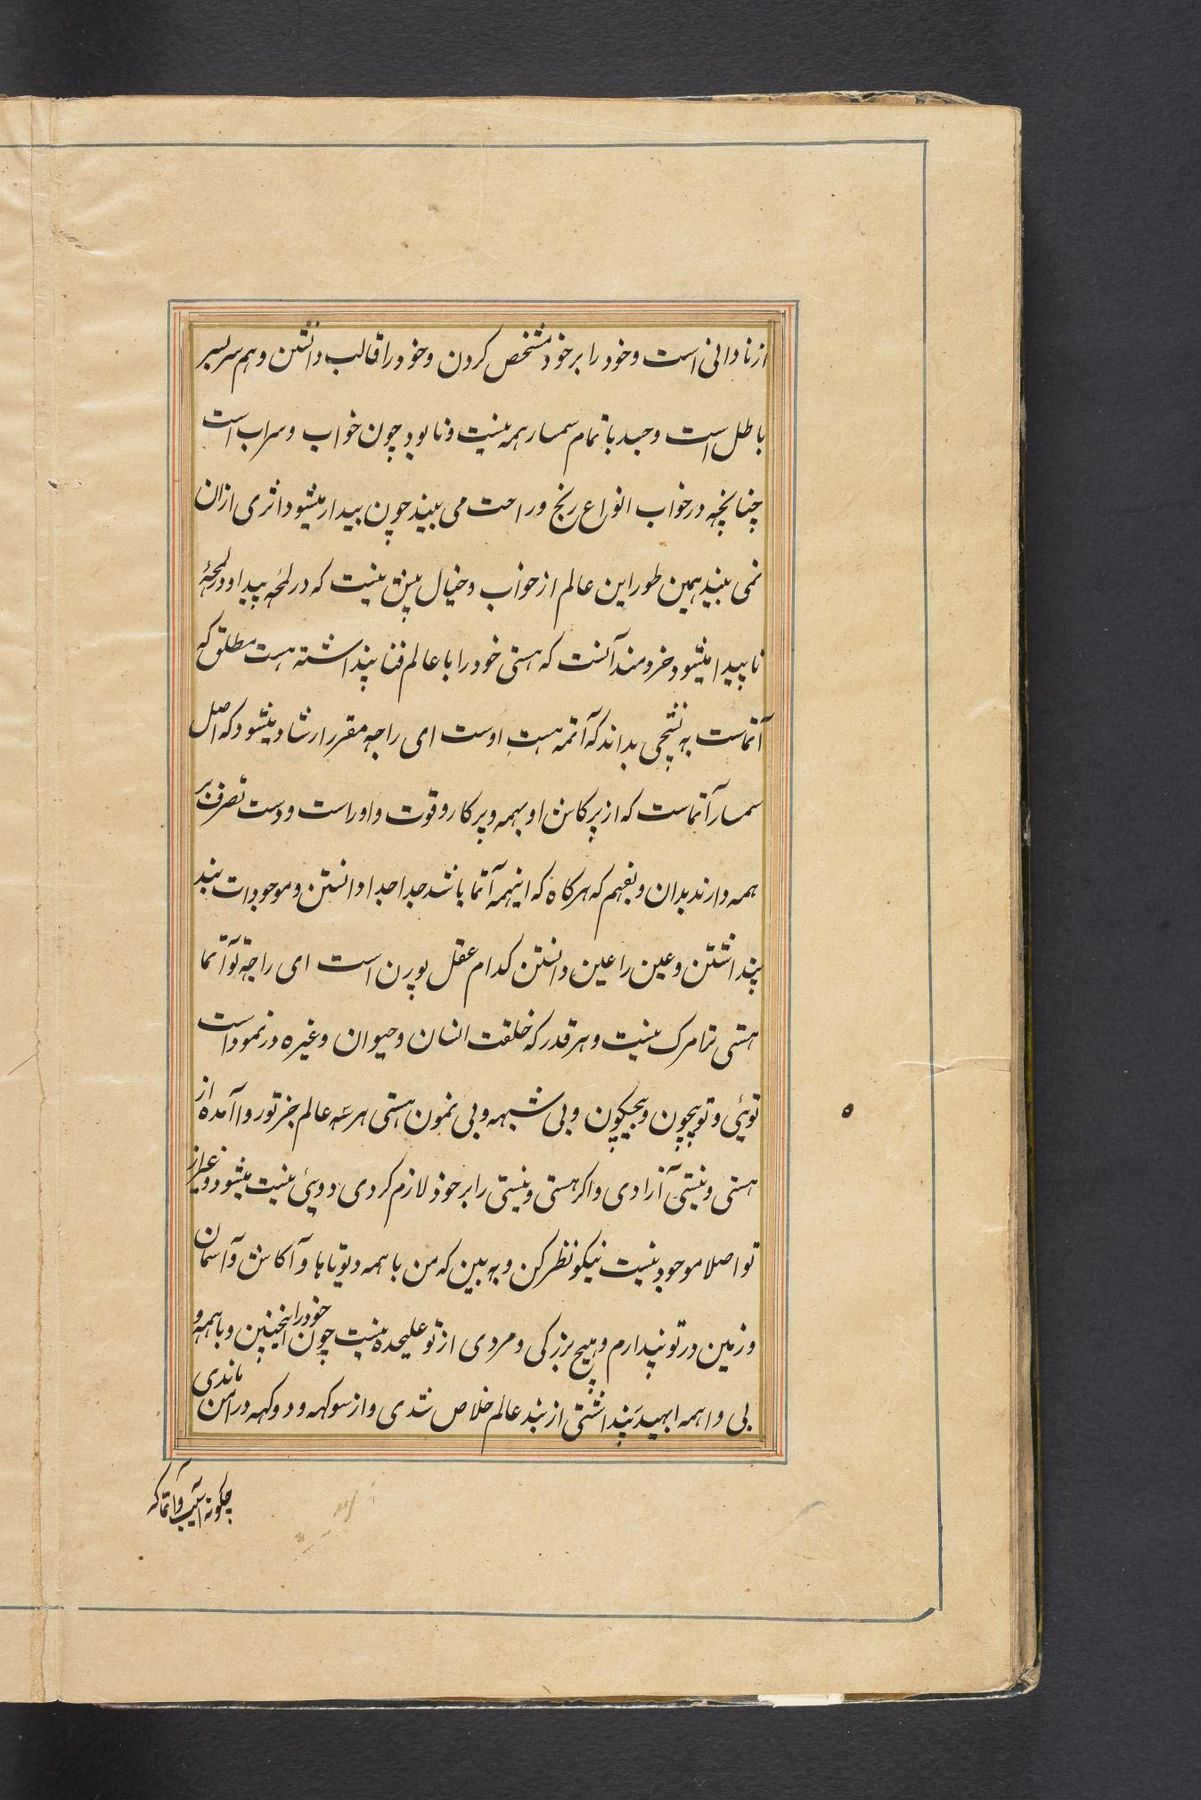 از نادانی است و خود را بر خود مشخص کردن و خود را قالب دانستن وهم سربسر
باطل است و جسد با تمام سمسار همه نیست و نابود چون خواب و سراب است
چنانچه در خواب انواع رنج و راحت می بیند چون بیدار میشود اثری ازان
نمی بیند همین طور این عالم از خواب و خیال بیش نیست که در لمحهٔ پیدا و در لمحهٔ
ناپیدا میشود خردمند آنست که هستی خود را با عالم فنا پنداشته هست مطلق که
آتماست به نشچی بداند که آتمه هست اوست ای راجه مقرر ارشاد میشود که اصل
سمسار آتماست که از پرکاش او بهمه و پرکار و قوت و اوراست و دست تصرف بر
همه دارند بدان و بفهم که هرگاه که اینهمه آتما باشد جدا جدا دانستن و موجودات بند
پنداشتن و عین را عین دانستن کدام عقل پورن است ای راجه تو آتما
هستی ترا مرگ نیست و هر قدر که خلقت انسان و حیوان و غیره در نمود است
توئی و تو بیچون و بیچگون و بی شبهه و بی نمون هستی هر سه عالم جز تو روا آمده از
هستی و نیستی آزادی و اگر هستی و نیستی را بر خود لازم کردی دویی نیست میشود و غیر از
تو اصلا موجود نیست نیکو نظر کن و به بین که من با همه دیوتاها و آکاش و آسمان
و زمین در تو پندارم و هیچ بزرگی و مردی از تو علیحده نیست چون خود را اینچنین و با همه و
بی و اهمه ابهید پنداشتی از بند عالم خلاص شدی و از سوکهه و دوکهه در امن ماندی
چگونه است و آتما که